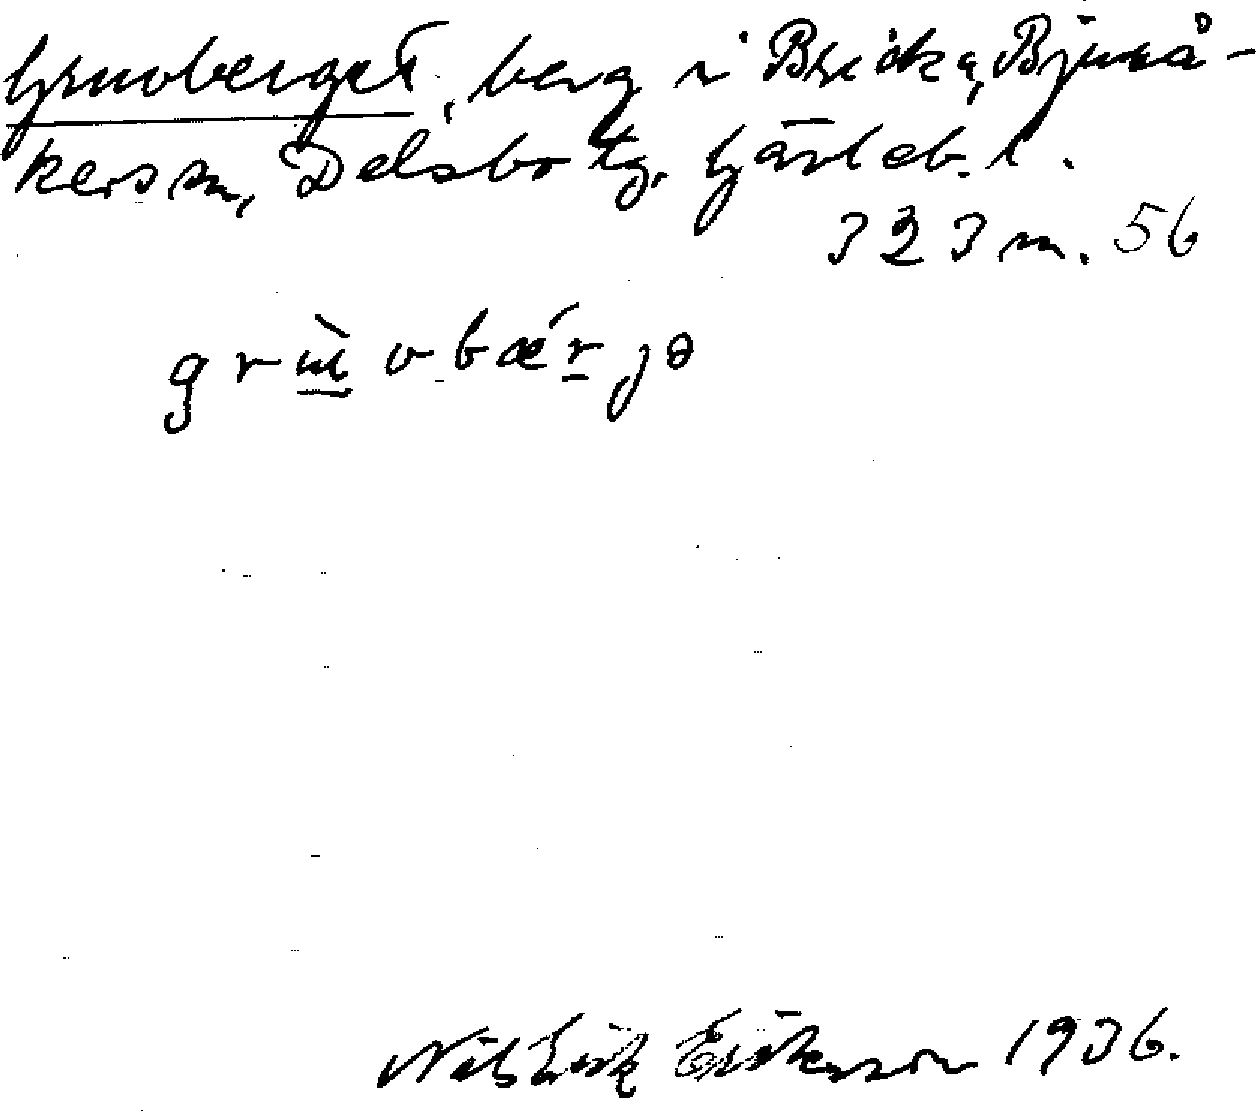 Gruvberget, berg i Bricka, Bjurå-
ker sn, Delsbo tg. Gävleb. l.
323 m. 56
grù̲vbǽr̲jə
Nils Erik Eriksson 1936.